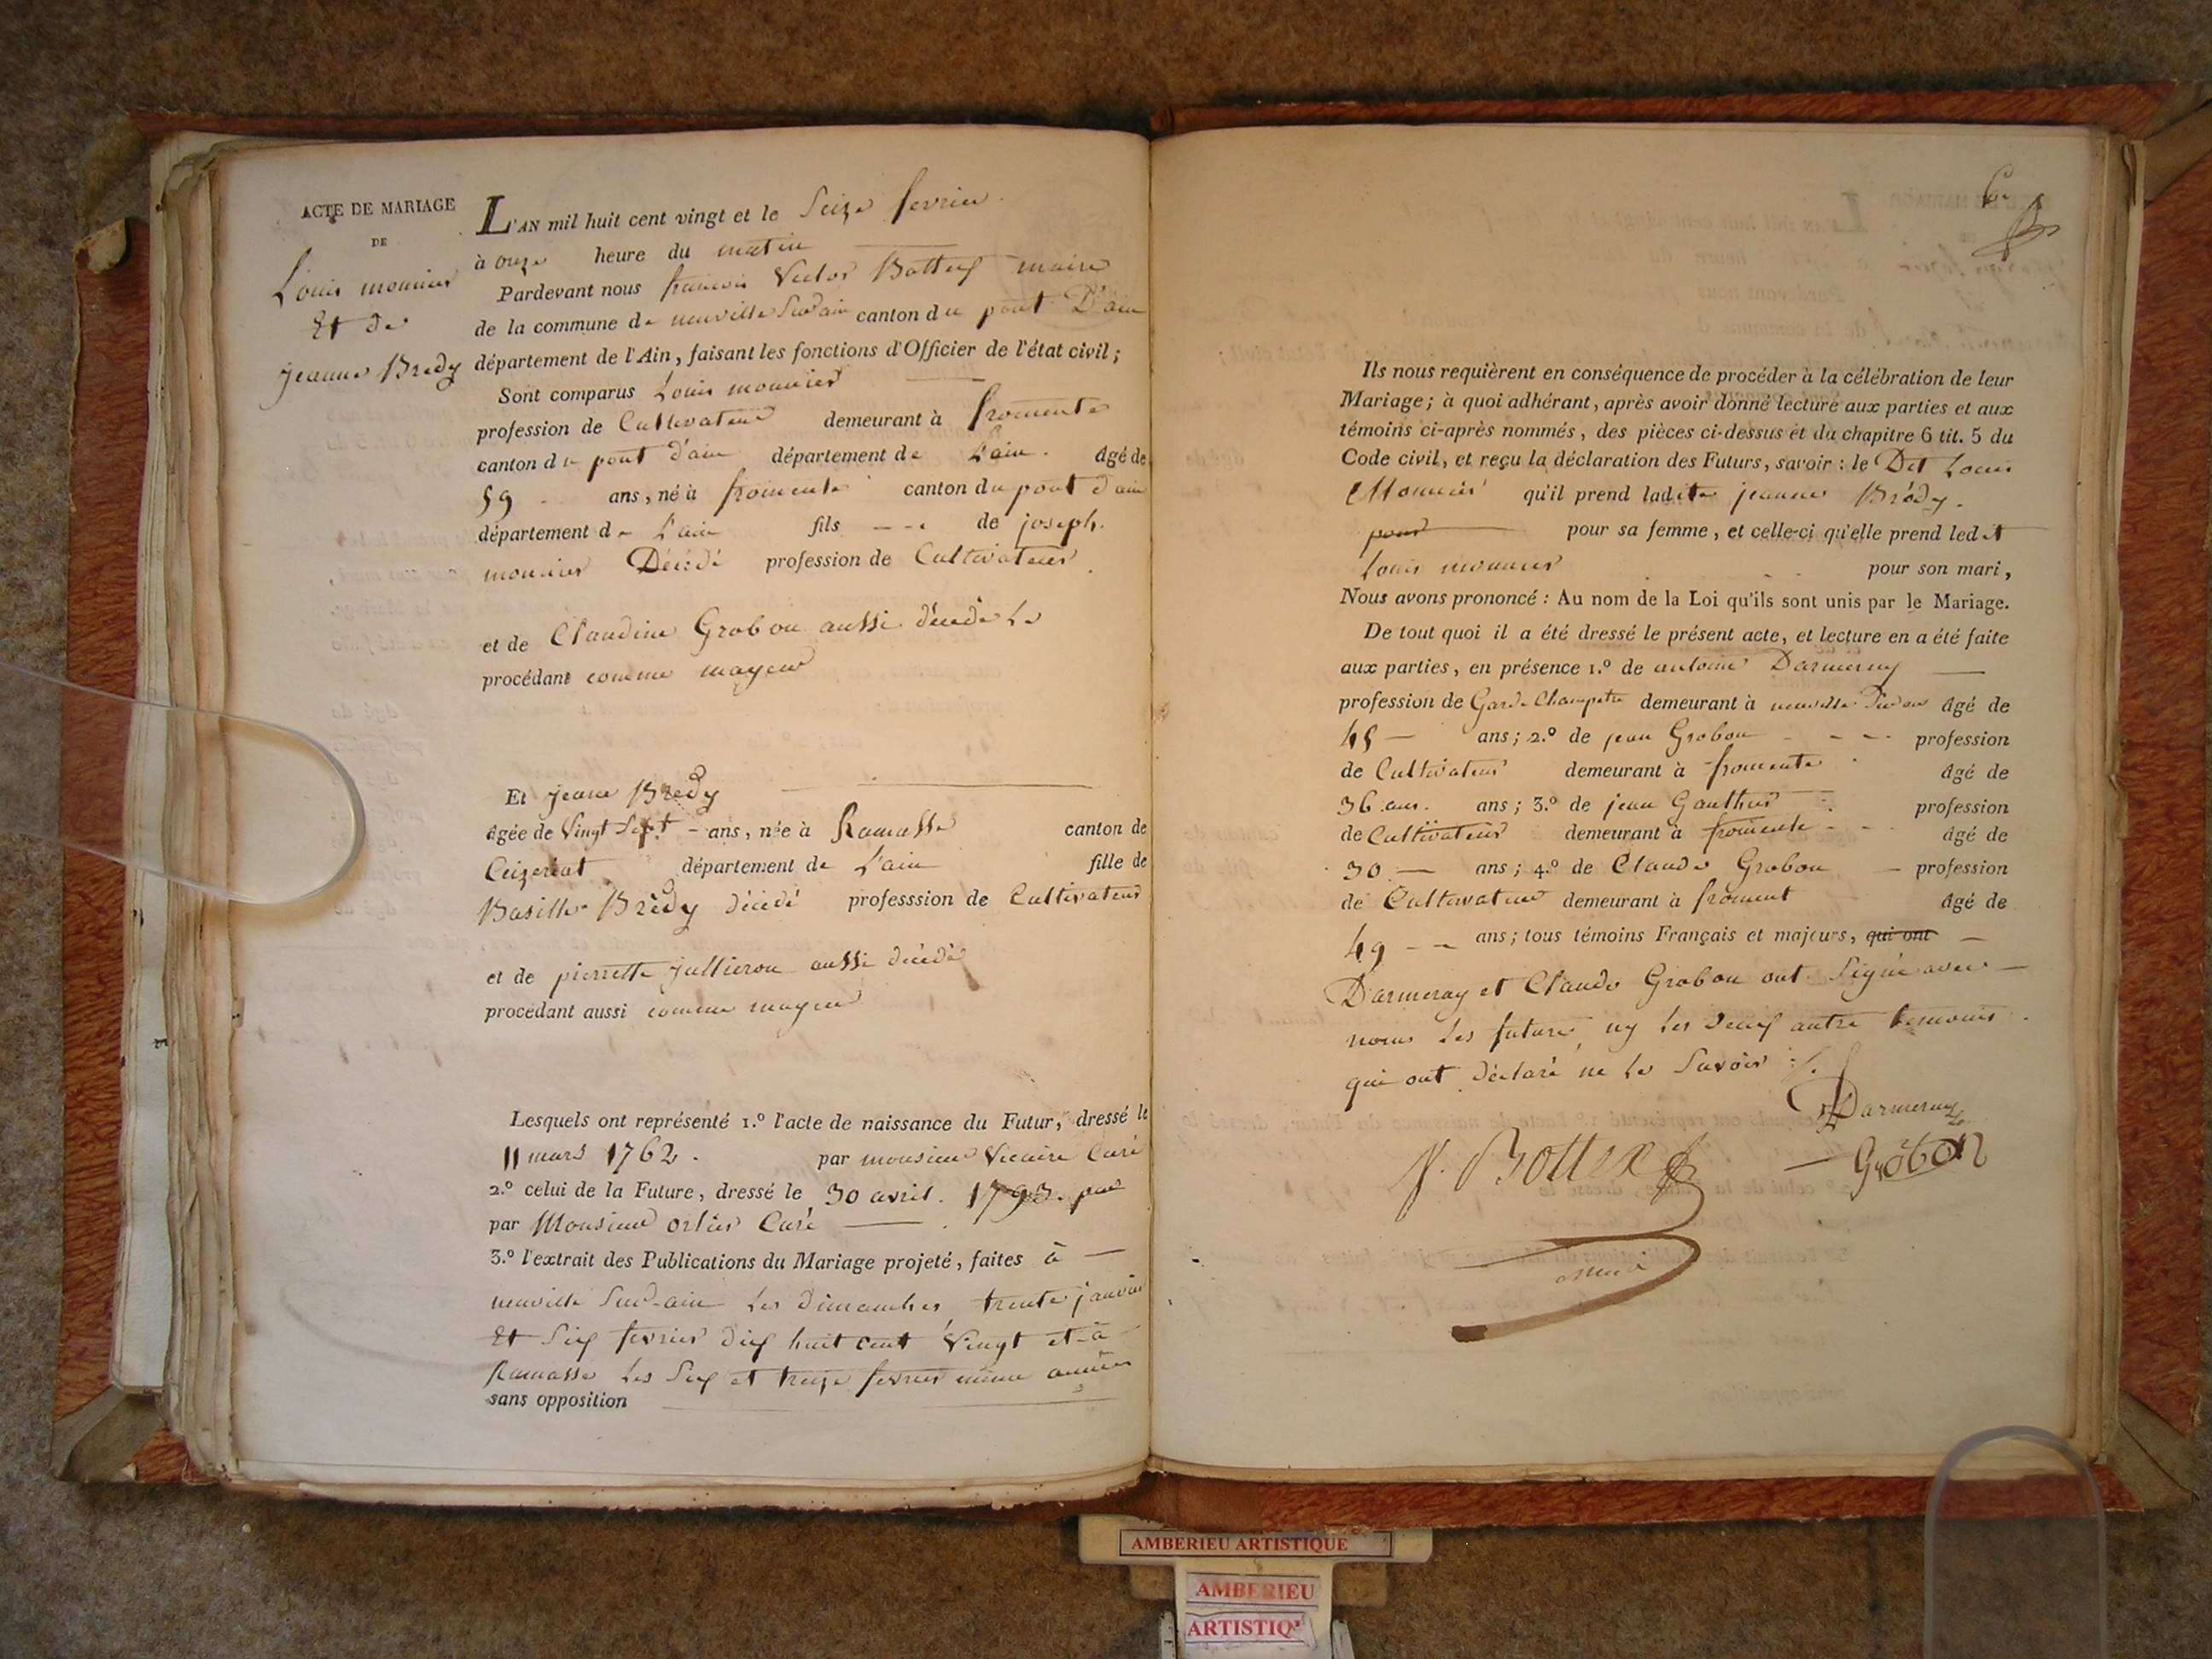 ACTE DE MARIAGE
DE
Louis monnier
Et de
jeanne Bredy
L'AN mil huit cent vingt et le Seize fevrier
à onze heure du matin
Pardevant nous francois Victor Bottex maire
de la commune de neuville Sur ain canton du pont D'ain
département de l'Ain, faisant les fonctions d'Officier de l'état civil;
Sont comparus Louis monnier
profession de Cultivateur demeurant à fromente
canton du pont d'ain département de L'ain. âgé de
59 ans, né à fromente canton du pont d'ain
département de L'ain fils de joseph
monnier Décédé profession de Cultivateur
et de Claudine Grobon aussi décédé Le
procédant comme mayeur
Et jeane Bredy
âgée de Vingt Sept - ans, née à Ramasse canton de
Ceizeriat département de L'ain fille de
Basille Brédy décédé professsion de Cultivateur
et de pierrette jullieron aussi décédé
procédant aussi comme mayeur
Lesquels ont représenté 1.º l'acte de naissance du Futur, dressé le
11 mars 1762. par monsieur Vicaire Curé
2.º celui de la Future, dressé le 30 avril. 1793. par
par Monsieur Curé
3.º l'extrait des Publications du Mariage projeté, faites à
neuville Sur-ain Les dimanches trente janvier
Et Six fevrier dix huit cent Vingt et à
Ramasse Les Six et treize fevrier même année
sans opposition
6e
Ils nous requièrent en conséquence de procéder à la célébration de leur
Mariage; à quoi adhérant, après avoir donné lecture aux parties et aux
témoins ci-après nommés, des pièces ci-dessus et du chapitre 6 tit. 5 du
Code civil, et reçu la déclaration des Futurs, savoir: le Dit Louis
Monnier qu'il prend ladite jeanne Brédy.
pour pour sa femme, et celle-ci qu'elle prend ledit
Louis monnier pour son mari,
Nous avons prononcé: Au nom de la Loi qu'ils sont unis par le Mariage.
De tout quoi il a été dressé le présent acte, et lecture en a été faite
aux parties, en présence 1.º de antoine Darmeray
profession de Garde Champetre demeurant à neuville Sur ain âgé de
45 — ans; 2.º de jean Grobon profession
de Cultivateur demeurant à fromente âgé de
36 ans. ans; 3.º de jean Gauthier profession
de Cultivateur demeurant à fromente âgé de
30 — ans; 4.º de Claude Grobon — profession
de Cultivateur demeurant à froment âgé de
49 -- ans; tous témoins Français et majeurs, qui ont —
Darmeray et Claude Grobon ont Signé avec —
nous Les future, ny Les deux autre temoins
qui ont déclaré ne Le Savoir
Darmeray
V. Bottex
Grobon
AMBERIEU ARTISTIQUE
AMBERIEU
ARTISTIQ